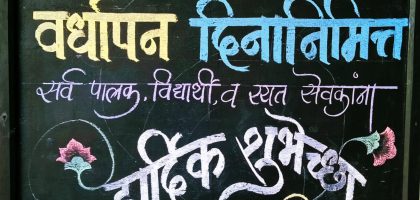 वर्धापन दिनानिमित्त
सर्व पालक, विद्यार्थी, व रयत सेवकांना
हार्दिक शुभेच्छा